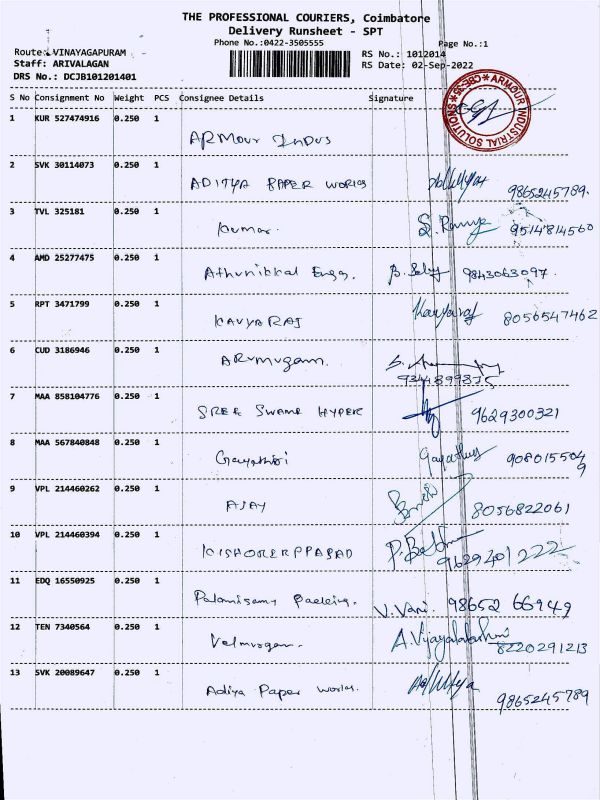 THE PROFESSIONAL COURIERS, Coimbatore
Delivery Runsheet - SPT
Phone No.:0422-3505555
Page No.:1
Route: VINAYAGAPURAM
RS No.: 1012014
Staff: ARIVALAGAN
RS Date: 02-Sep-2022
DRS No.: DCJB101201401
S No Consignment No Weight PCS Consignee Details Signature
ARMOUR INDUSTRIAL SOLUTIONS
1 KUR 527474916 0.250 1 ARMour Indus
2 SVK 30114073 0.250 1 ADITYA PAPER WORLD 9865245789.
3 TVL 325181 0.250 1 Kumar. S. Ramya 9514814560
4 AMD 25277475 0.250 1 Athunikkal Engg. 9843063097.
5 RPT 3471799 0.250 1 KAVYARAJ Kavyaraj 8056547462
6 CUD 3186946 0.250 1 ARumugam. 9344899875
7 MAA 858104776 0.250 1 SREE SWAME HYPER 9629300321
8 MAA 567840848 0.250 1 Gayathiri Gayathiry 9080155049
9 VPL 214460262 0.250 1 AJAY 8056822061
10 VPL 214460394 0.250 1 KISHORERPRASAD 9629401222
11 EDQ 16550925 0.250 1 Palanisamy Packing. V. Vani. 98652 66949
12 TEN 7340564 0.250 1 Velmurugan. A. Vijayalakshmi 8220291213
13 SVK 20089647 0.250 1 Adiya Paper World. 9865245789